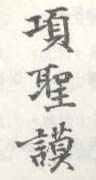 項聖謨